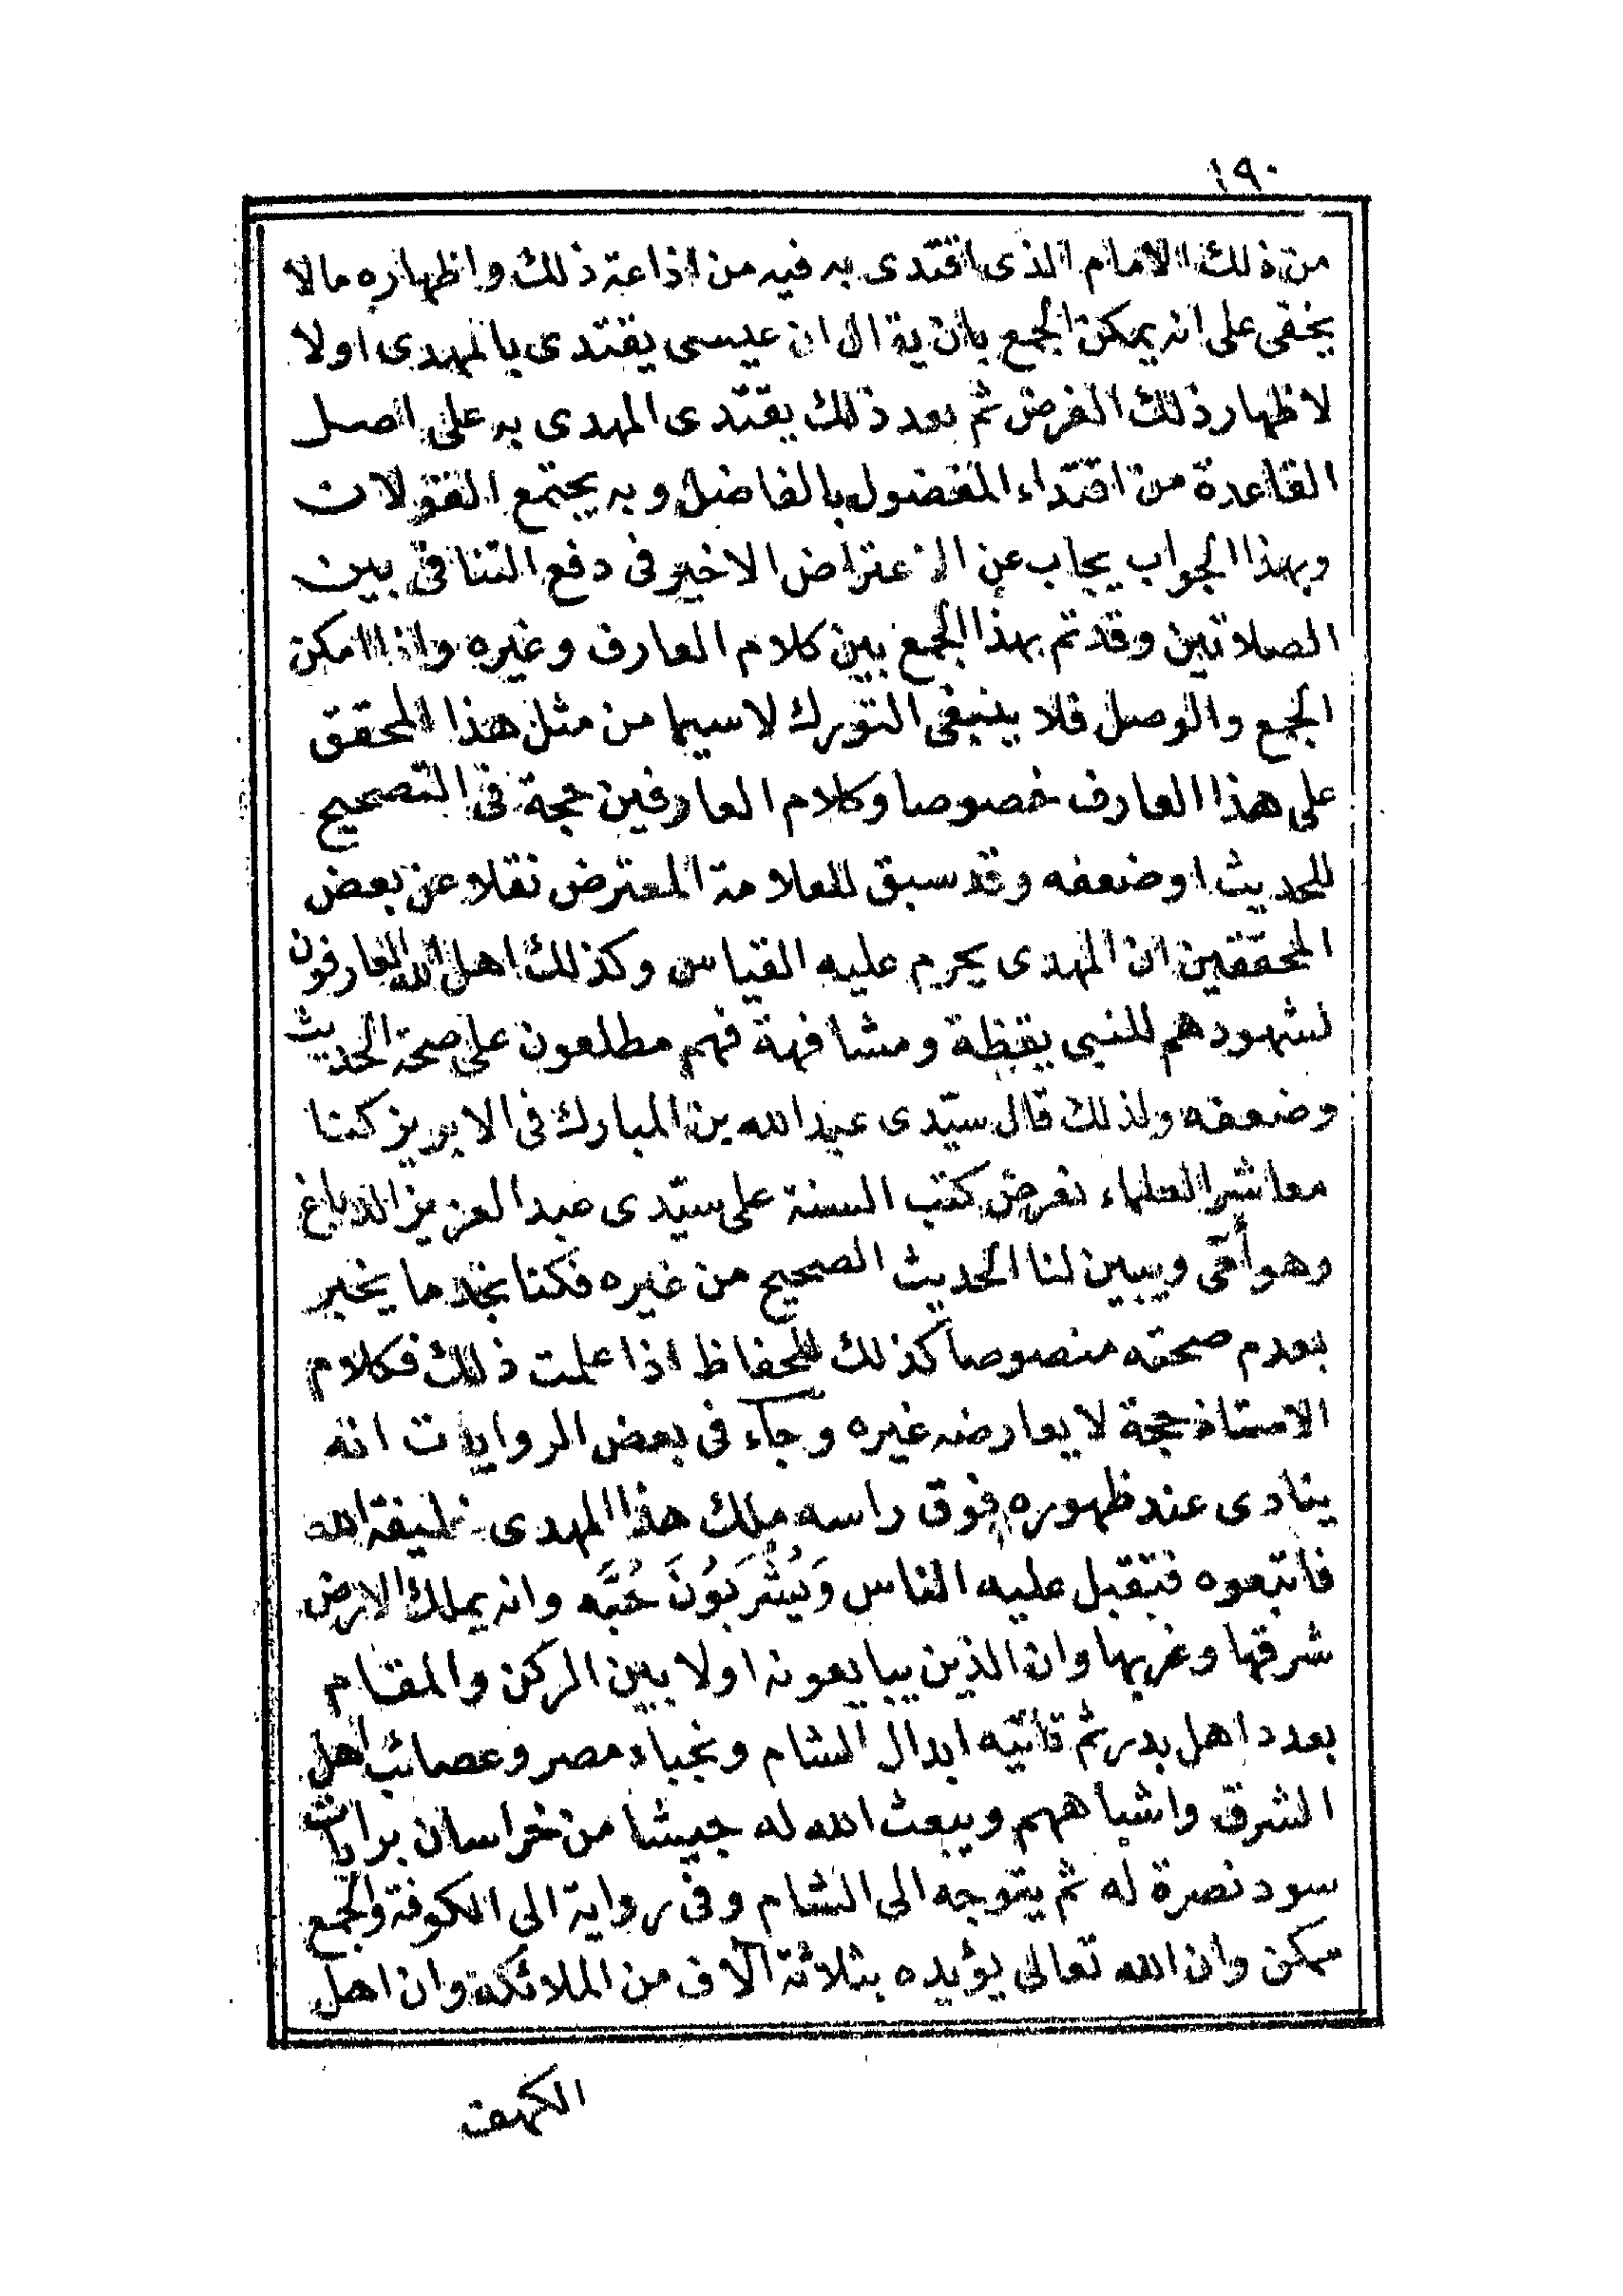 ١٩٠
من ذلك الامام الذى اقتدى به فيه من اذاعة ذلك واظهاره مالا
يخفى على انه يمكن الجمع بان يقال ان عيسى يقتدى بالمهدى اولا
لاظهار ذلك الغرض ثم بعد ذلك يقتدى المهدى به على اصل
القاعدة من اقتداء المفضول بالفاضل وبه يجتمع القولان
وبهذا الجواب يجاب عن الاعتراض الاخير فى دفع التنافى بين
الصلاتين وقد تم بهذا الجمع بين كلام العارف وغيره واذا امكن
الجمع والوصل فلا ينبغى التورك لاسيما من مثل هذا المحقق
على هذا العارف خصوصا وكلام العارفين حجة فى التصحيح
للحديث اوضعفه وقد سبق للعلامة المعترض نقلا عن بعض
المحققين ان المهدى يحرم عليه القياس وكذلك اهل الله العارفون
لشهودهم للنبى يقظة ومشافهة فهم مطلعون على صحة الحديث
وضعفه ولذلك قال سيّدى عبدالله بن المبارك فى الابريز كنا
معاشر العلماء نعرض كتب السنة على سيّدى عبدالعزيز الدباغ
وهو أمّى ويبين لنا الحديث الصحيح من غيره فكنا نجد ما يخبر
بعدم صحته منصوصا كذلك للحفاظ اذا علمت ذلك فكلام
الاستاذ حجة لا يعارضه غيره وجآء فى بعض الروايات انه
ينادى عند ظهوره فوق راسه ملك هذا المهدى خليفة الله
فاتبعوه فتقبل عليه الناس وَيُشْرَبُونَ حُبَّه وانه يملك الارض
شرقها وغربها وان الذين يبايعونه اولا بين الركن والمقام
بعدد اهل بدر ثم تأتيه ابدال الشام ونجباء مصر وعصائب اهل
الشرق واشباههم ويبعث الله له جيشا من خراسان برايات
سود نصرة له ثم يتوجه الى الشام وفى رواية الى الكوفة والجمع
ممكن وان الله تعالى يؤيده بثلاثة آلاف من الملائكة وان اهل
الكهف